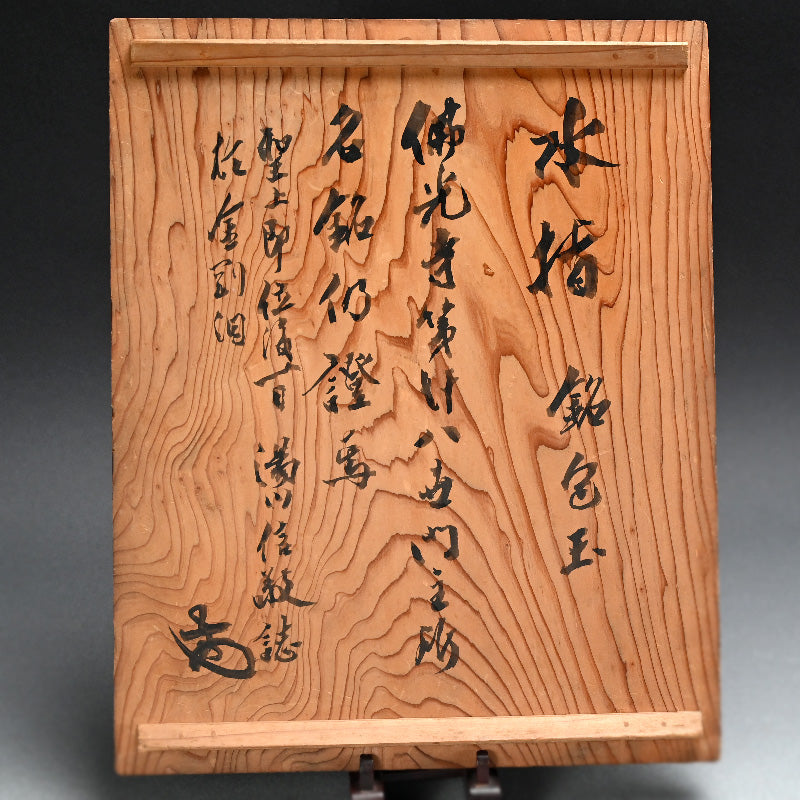 水指 銘包玉
佛光寺第廿八世門主所
名銘仍證焉
聖上即位後十日 湯川信敬誌
於金剛沮